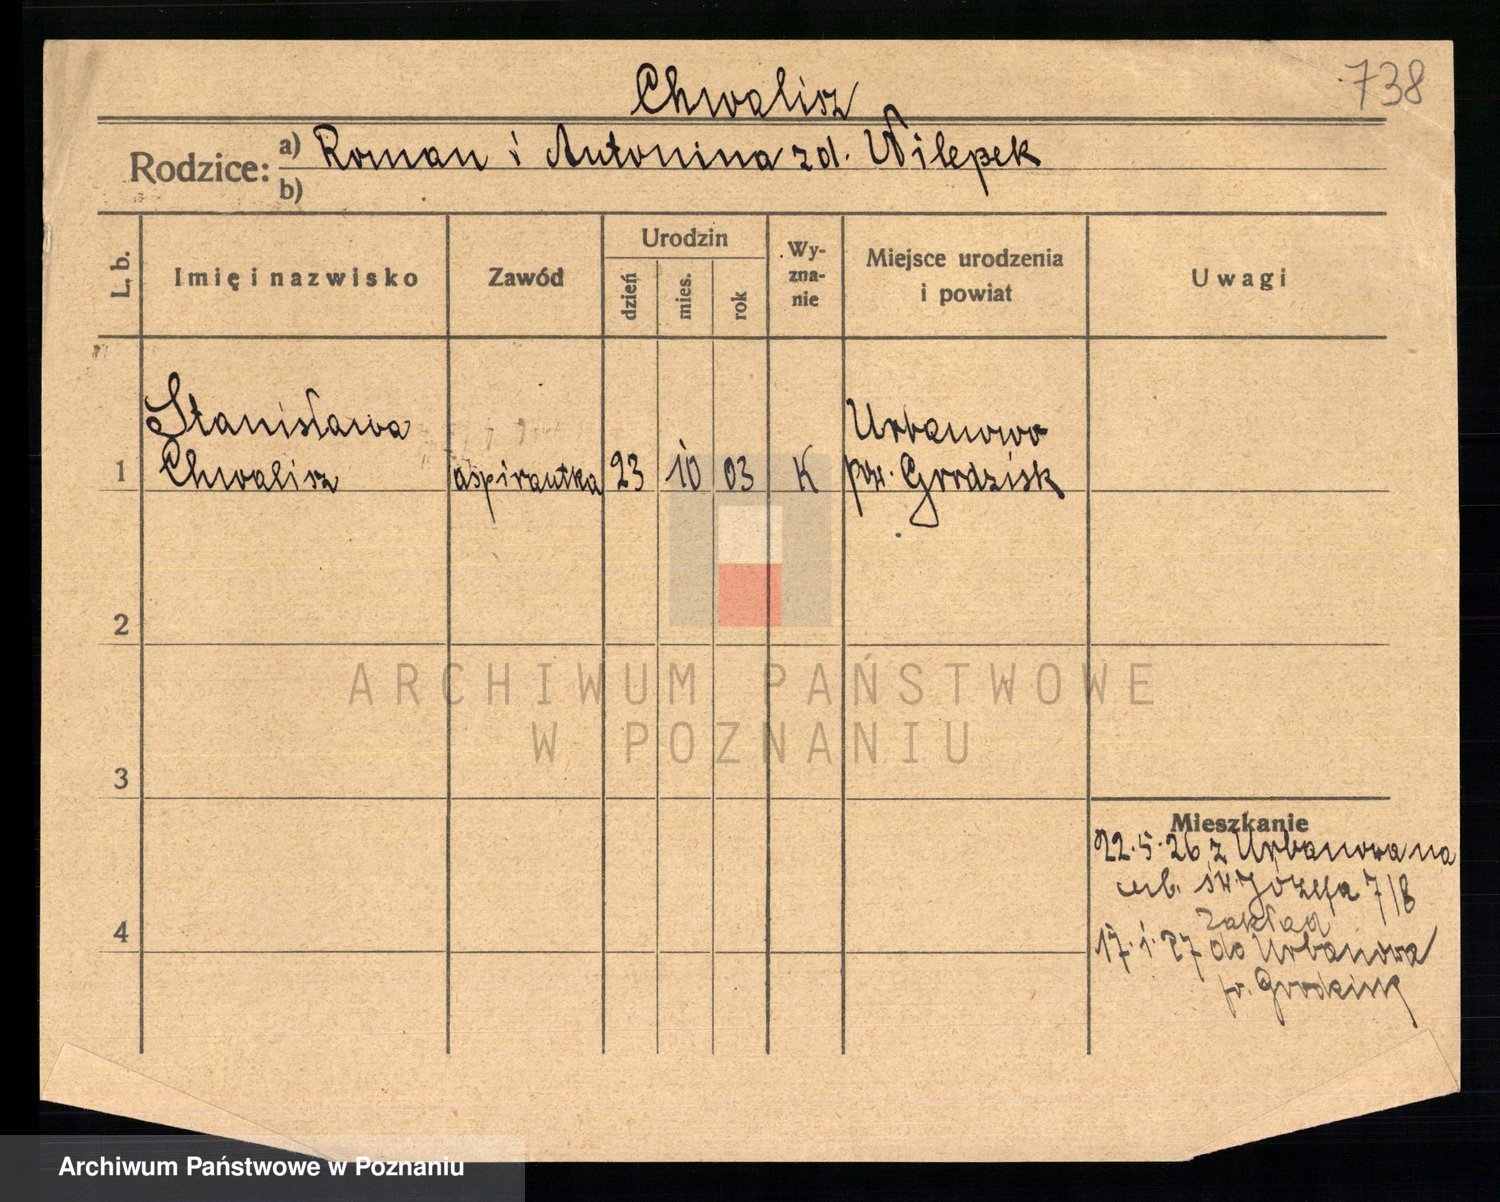 Chwalisz
738
Rodzice: a) Roman i Antonina zd. Wilepek
b)
L. b.
Imię i nazwisko
Zawód
Urodzin
dzień
mies.
rok
Wy-
zna-
nie
Miejsce urodzenia
i powiat
Uwagi
Stanisława Urbanowo
1 Chwalisz aspirantka 23 10 03 K pow. Grodzisk
2
ARCHIWUM PAŃSTWOWE
W POZNANIU
3
Mieszkanie
22.5.26 z Urbanowa na
św. Józefa 7/8
Zakład
4
17.1.27 do Urbanowa
p. Grodzisk
Archiwum Państwowe w Poznaniu